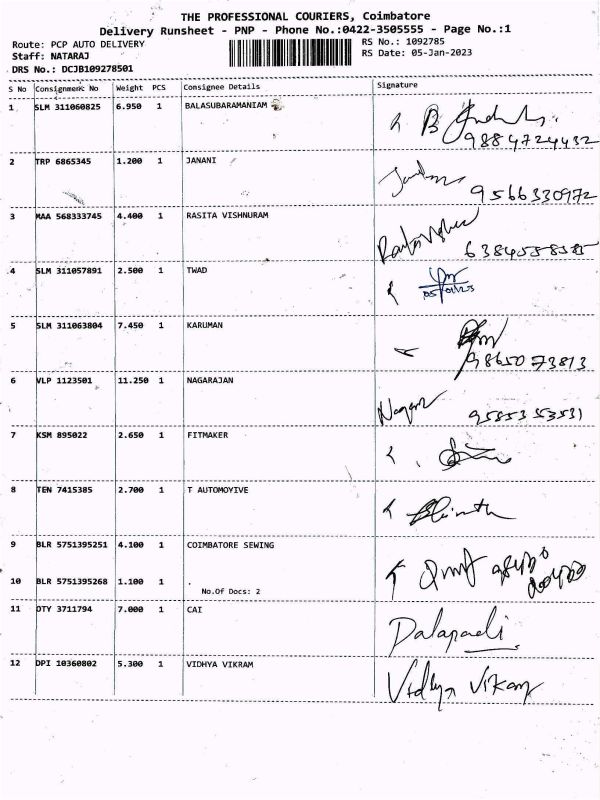 THE PROFESSIONAL COURIERS, Coimbatore
Delivery Runsheet - PNP - Phone No.:0422-3505555 - Page No.:1
Route: PCP AUTO DELIVERY RS No.: 1092785
Staff: NATARAJ RS Date: 05-Jan-2023
DRS No.: DCJB109278501
S No Consignment No Weight PCS Consignee Details Signature
1 SLM 311060825 6.950 1 BALASUBARAMANIAM
9884724432
2 TRP 6865345 1.200 1 JANANI
9566330972
3 MAA 568333745 4.400 1 RASITA VISHNURAM
4 SLM 311057891 2.500 1 TWAD
05/01/23
5 SLM 311063804 7.450 1 KARUMAN
9865073813
6 VLP 1123501 11.250 1 NAGARAJAN
9585353531
7 KSM 895022 2.650 1 FITMAKER
8 TEN 7415385 2.700 1 T AUTOMOYIVE
9 BLR 5751395251 4.100 1 COIMBATORE SEWING
10 BLR 5751395268 1.100 1 .
No.Of Docs: 2
11 OTY 3711794 7.000 1 CAI
12 DPI 10360802 5.300 1 VIDHYA VIKRAM
Vidhya Vikram